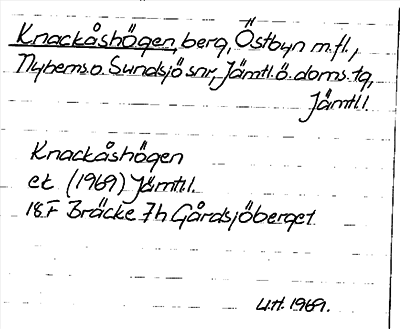 Knackåshögen, berg, Östbyn m.fl.,
Nyhems o. Sundsjö snr, Jämtl. ö. doms.tg,
Jämtl.
Knackåshögen
ek (1969) Jämtl.
18F Bräcke 7h Gårdsjöberget
U.H. 1969.